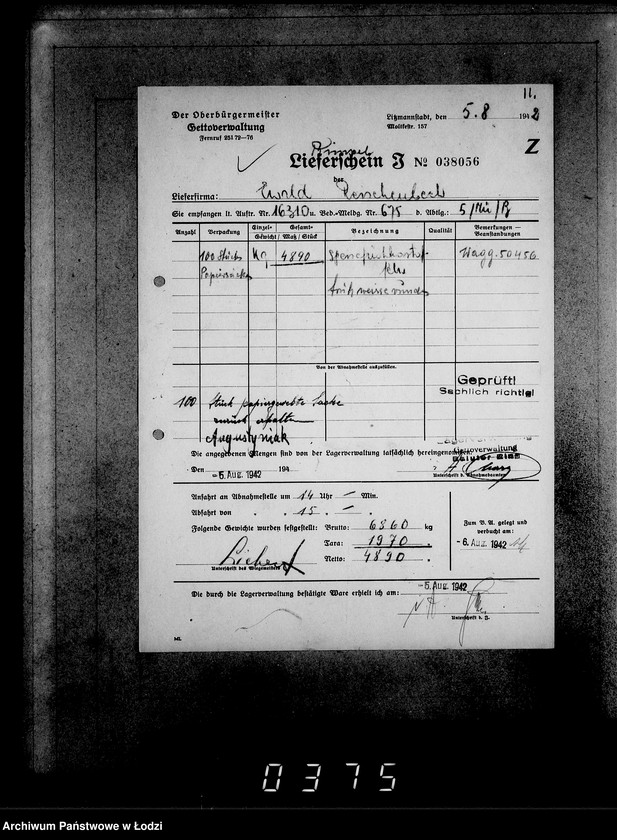 11.
Der Oberbürgermeister
Gettoverwaltung
Fernruf 251 72—76
Litzmannstadt, den 5.8 1942
Moltkestr. 157
Z
Lieferschein J № 038056
der
Lieferfirma: Ewald
Sie empfangen lt. Auftr. Nr. 16310 u. Bed.-Meldg. Nr. 675 d. Abtlg.:
Anzahl Verpackung Einzel- Gesamt- Bezeichnung Qualität Bemerkungen —
Gewicht / Maß / Stück Beanstandungen
100 Stück Kg 4890 Speisefrühkartof- Wagg. 50456
Papiersäcke feln
weisse runde
Von der Abnahmestelle auszufüllen.
Geprüft!
Sachlich richtig!
100 Stück papiergewebte Säcke
zurück erhalten
Augustyniak
Die angegebenen Mengen sind von der Lagerverwaltung tatsächlich hereingenommen.
Gettoverwaltung
Den -5. Aug. 1942 194
Unterschrift d. Abnahmebeamten
Anfahrt an Abnahmestelle um 14 Uhr — Min.
Abfahrt von " " 15 " — "
Folgende Gewichte wurden festgestellt: Brutto: 6860 kg
Tara: 1970 "
Netto: 4890 "
Unterschrift des Wiegemeisters
Zum B. A. gelegt und
verbucht am:
-6. Aug. 1942
Die durch die Lagerverwaltung bestätigte Ware erhielt ich am: -5. Aug. 1942
Unterschrift d. J.
0375
Archiwum Państwowe w Łodzi